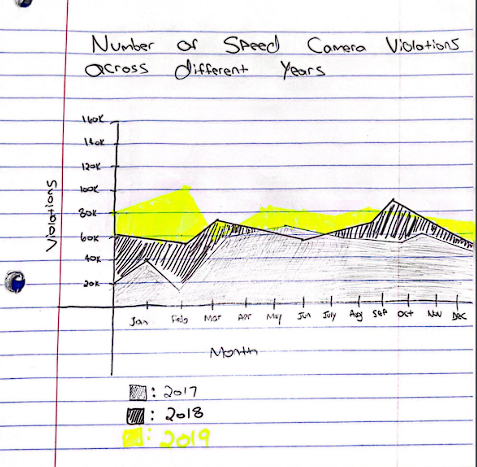 Number of Speed Camera Violations
across different Years
160K
140K
120K
100K
80K
60K
40K
20K
Violations
Jan Feb Mar Apr May Jun July Aug Sep Oct Nov Dec
Month
: 2017
: 2018
: 2019